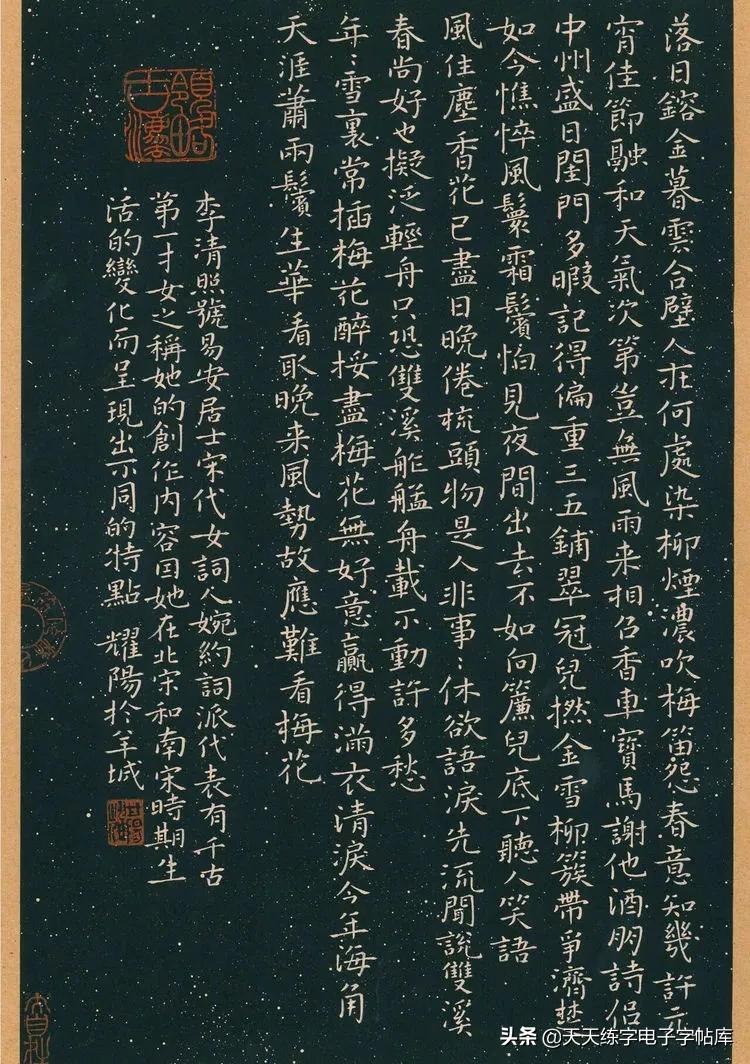 落日鎔金暮雲合璧人在何處染柳煙濃吹梅笛怨春意知幾許元
宵佳節融和天氣次第豈無風雨来相召香車寶馬謝他酒朋詩侶
中州盛日閨門多暇記得偏重三五鋪翠冠兒撚金雪柳簇帶爭濟楚
如今憔悴風鬟霜鬢怕見夜間出去不如向簾兒底下聽人笑語
風住塵香花已盡日晚倦梳頭物是人非事:休欲語淚先流聞說雙溪
春尚好也擬泛輕舟只恐雙溪舴艋舟載不動許多愁
年:雪裏常插梅花醉挼盡梅花無好意贏得滿衣清淚今年海角
天涯蕭兩鬢生華看取晚来風勢故應難看梅花
李清照號易安居士宋代女詞人婉約詞派代表有千古
第一才女之稱她的創作內容因她在北宋和南宋時期生
活的變化而呈現出不同的特點 耀陽於羊城
头条 @天天练字电子字帖库